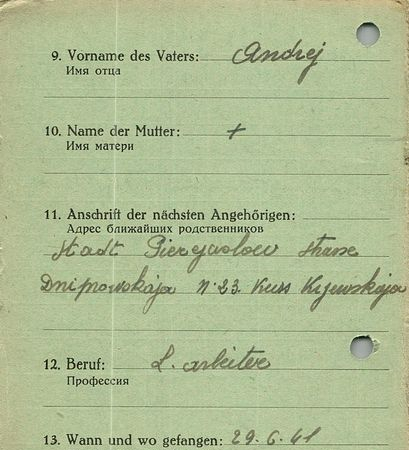 9. Vorname des Vaters: Andrej
Имя отца
10. Name der Mutter: +
Имя матери
11. Anschrift der nächsten Angehörigen:
Адрес ближайших родственников
Stadt Pierejasloew strasse
Dniprowskaja N. 23. Kurs Kyjewskaja
12. Beruf: L. arbeiter
Профессия
13. Wann und wo gefangen: 29. 6. 41